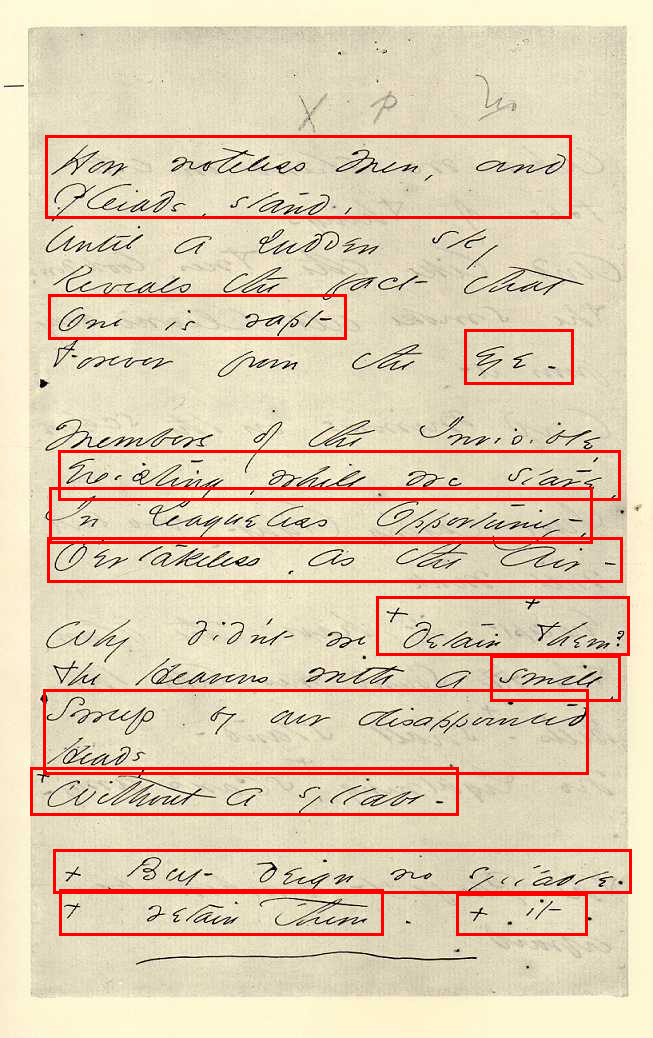 X P
How noteless Men, and
Pleiads, stand,
Until a sudden sky
Reveals the fact that
One is rapt -
Forever from the Eye -
Members of the Invisible,
Existing, while we stare,
In Leagueless Opportunity,
O'ertakeless, as the Air -
Why didn't we + detain + Them?
The Heavens with a smile,
Sweep by our disappointed
Heads,
+ Without a syllable -
+ But deign no syllable -
+ retain Them . + it -